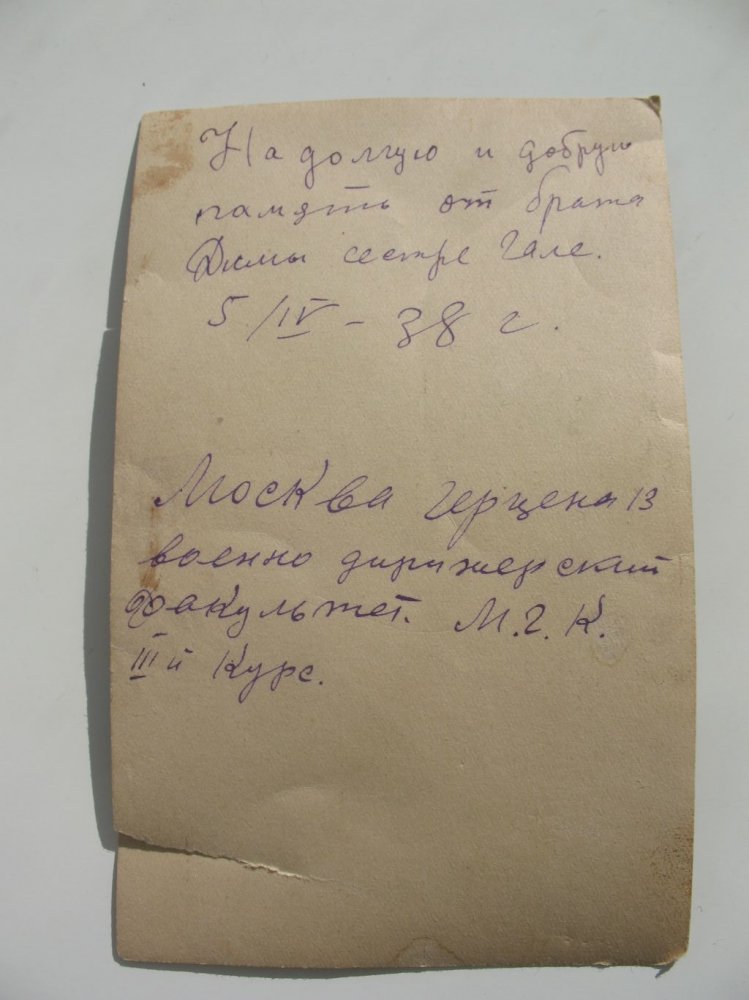 На долгую и добрую
память от брата
Димы сестре Гале.
5/IV - 38 г.
Москва Герцена 13
военно дирижерский
Факультет. М.Г.К.
III й Курс.